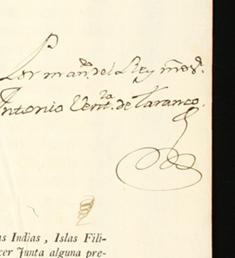 Por man.do del Rey nro s.r
Antonio Vent.ra de Taranco.
as Indias, Islas Fili-
cer Junta alguna pre-